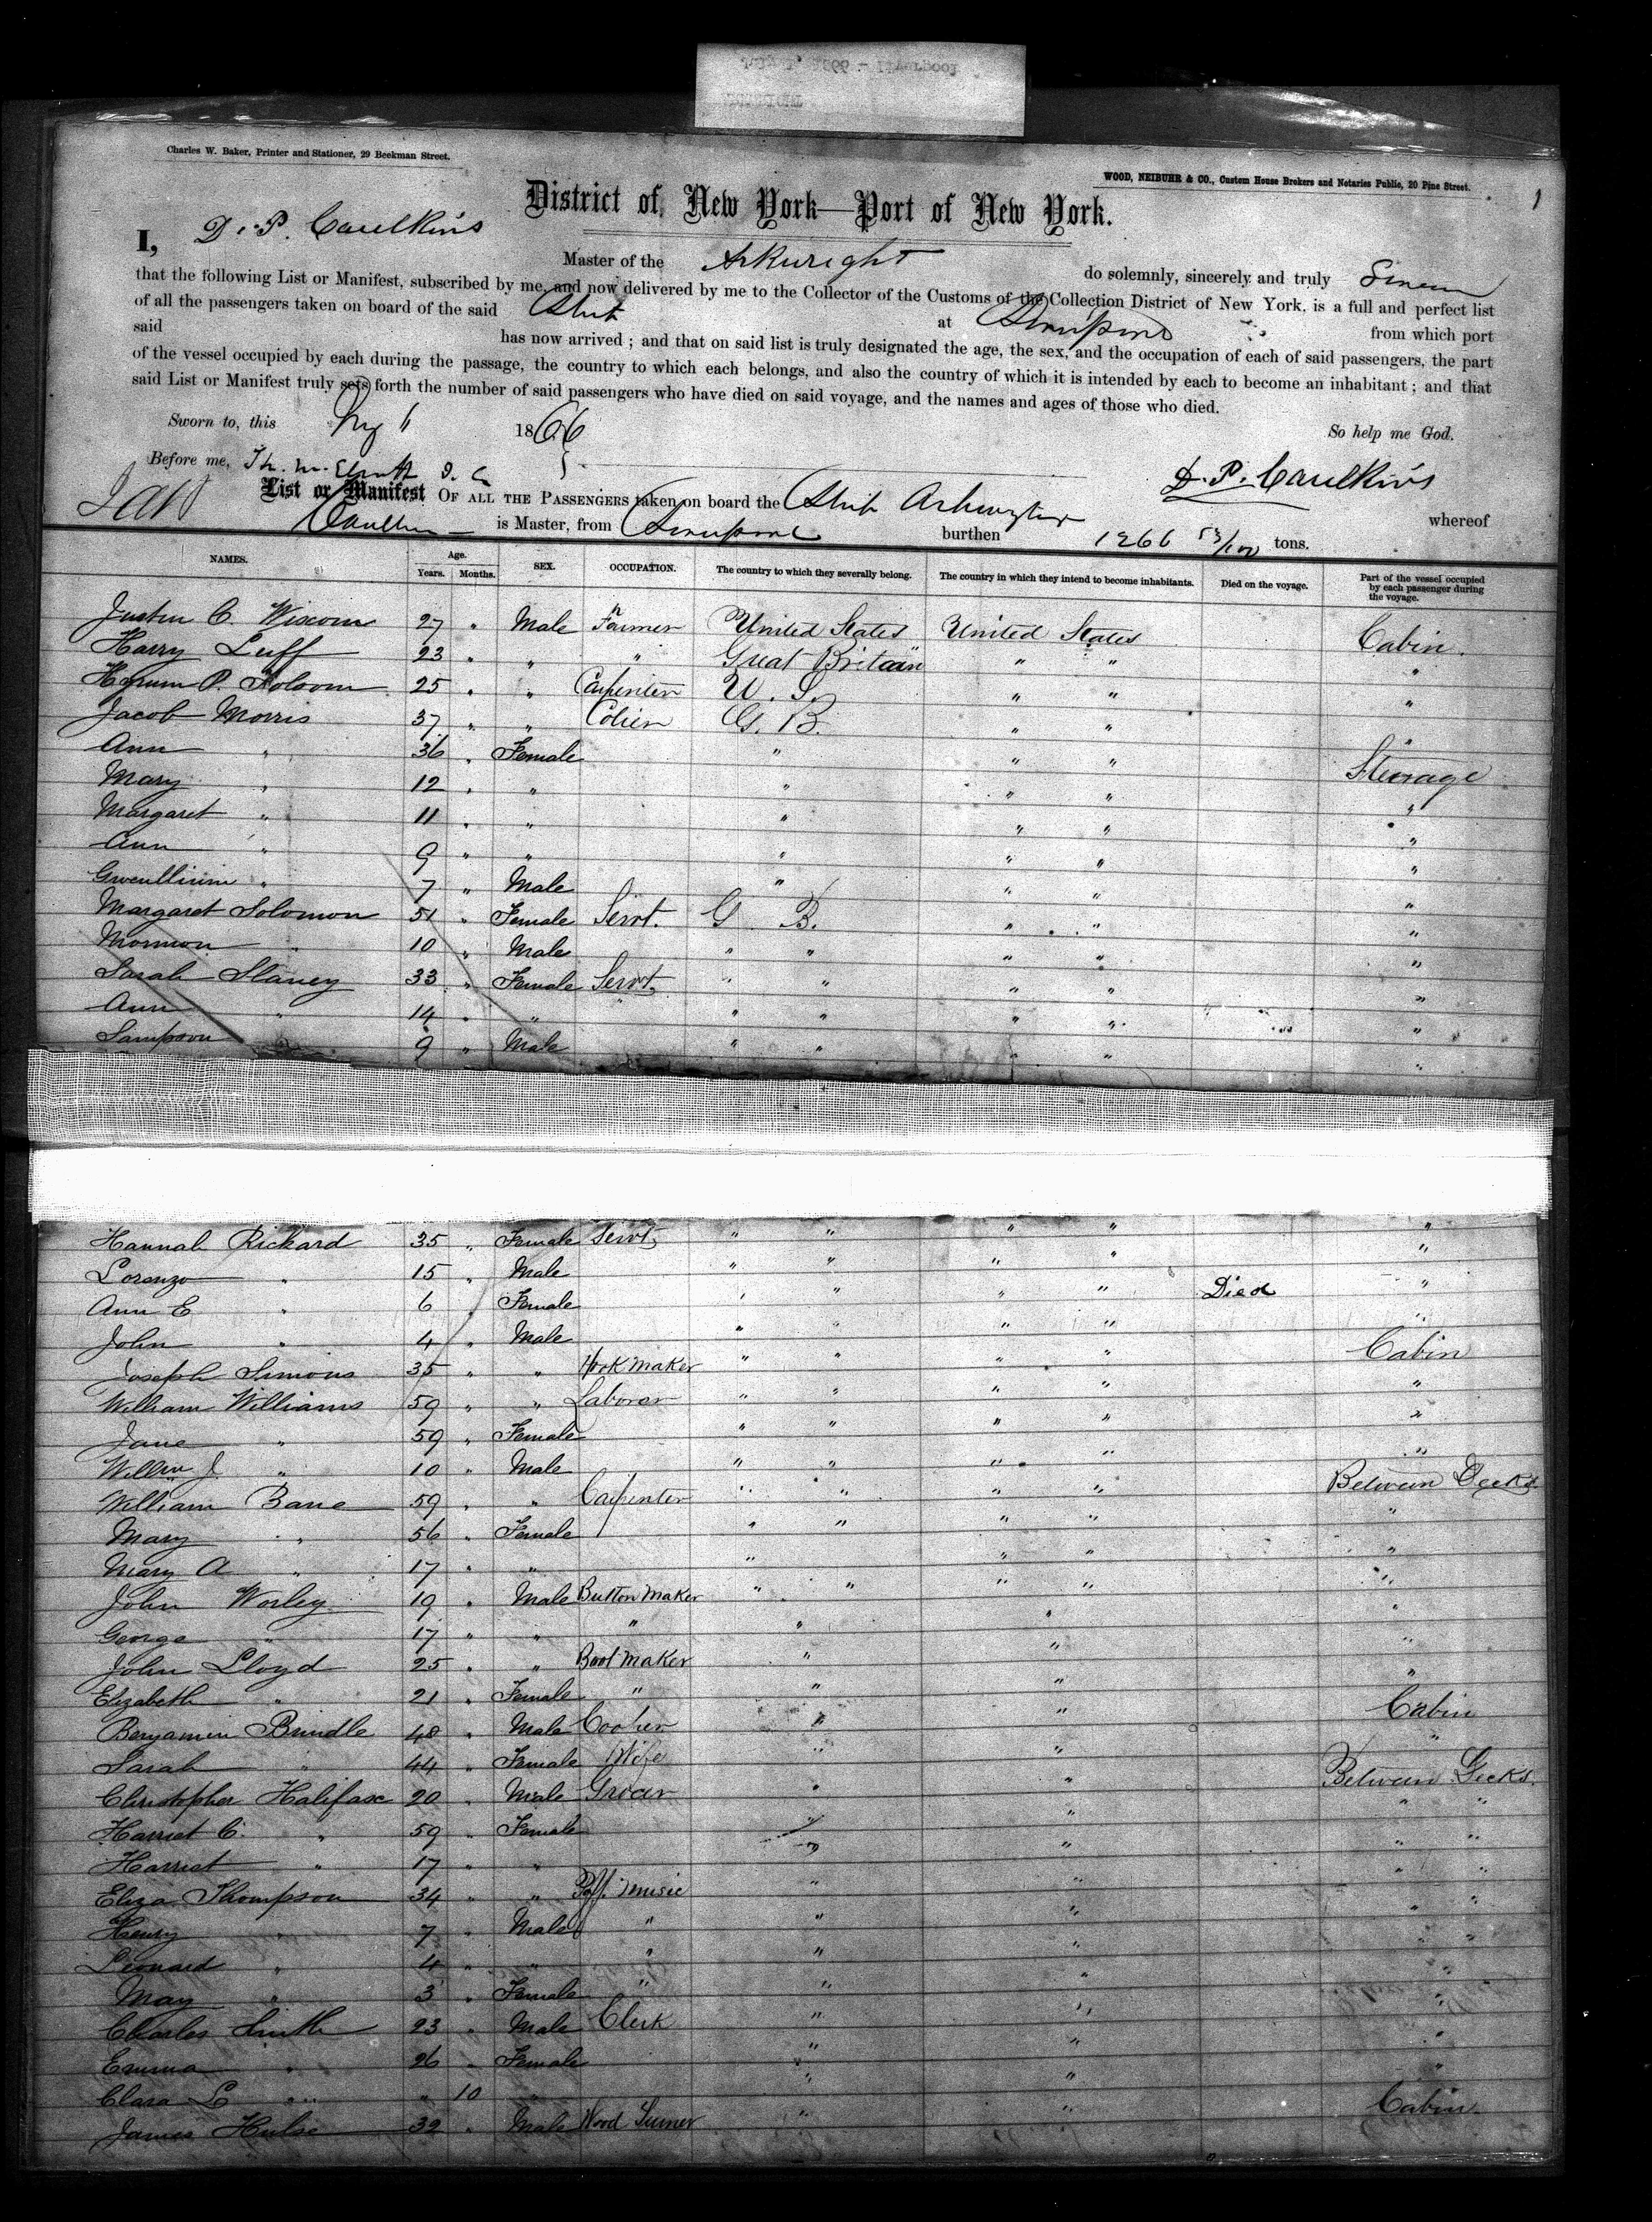 Charles W. Baker, Printer and Stationer, 29 Beekman Street.
WOOD, NEIBUHR & CO., Custom House Brokers and Notaries Public, 20 Pine Street.
1
District of New York—Port of New York.
I, D. P. Caulkins Master of the Arkwright do solemnly, sincerely and truly Swear
that the following List or Manifest, subscribed by me, and now delivered by me to the Collector of the Customs of the Collection District of New York, is a full and perfect list
of all the passengers taken on board of the said Ship at Liverpool from which port
said has now arrived ; and that on said list is truly designated the age, the sex, and the occupation of each of said passengers, the part
of the vessel occupied by each during the passage, the country to which each belongs, and also the country of which it is intended by each to become an inhabitant ; and that
said List or Manifest truly sets forth the number of said passengers who have died on said voyage, and the names and ages of those who died.
Sworn to, this 1866 So help me God.
Before me, D. P. Caulkins
List or Manifest OF ALL THE PASSENGERS taken on board the Ship Arkwright whereof
Caulkins is Master, from Liverpool burthen 1266 53/100 tons.
NAMES. Age. Years. Months. SEX. OCCUPATION. The country to which they severally belong. The country in which they intend to become inhabitants. Died on the voyage. Part of the vessel occupied by each passenger during the voyage.
Justin C. Wixom 27 " Male Farmer United States United States Cabin.
Harry Luff 23 " " " Great Britain " " "
Hyrum P. Folsom 25 " " Carpenter U. S. " " "
Jacob Morris 37 " " Colier G. B. " " "
Ann " 36 " Female " " " Steerage
Mary " 12 " " " " " "
Margaret " 11 " " " " " "
Ann " 9 " " " " " "
Gwenllium " 7 " Male " " " "
Margaret Solomon 51 " Female Servt. G. B. " " "
Mormon " 10 " Male " " " " "
Sarah Slaney 33 " Female Servt. " " " " "
Ann " 14 " " " " " " " "
Sampson 9 " Male " " " " "
Hannah Rickard 35 " Female Servt. " " " " "
Lorenzo " 15 " Male " " " " "
Ann E " 6 " Female " " " " Died "
John " 4 " Male " " " " "
Joseph Simons 35 " " Hook Maker " " " " Cabin
William Williams 59 " " Laborer " " " " "
Jane " 59 " Female " " " " "
Willm J. " 10 " Male " " " " "
William Bane 59 " " Carpenter " " " " Between Decks
Mary " 56 " Female " " " " "
Mary A " 17 " " " " " "
John Worley 19 " Male Button Maker " " " " "
George " 17 " " " " " "
John Lloyd 25 " " Boot Maker " " "
Elizabeth " 21 " Female " " " "
Benjamin Brindle 48 " Male Cooper " " Cabin
Sarah " 44 " Female Wife " " "
Christopher Halifax 20 " Male Grocer " " Between Decks.
Harriet C. " 59 " Female " " " "
Harriet " 17 " " " " " "
Eliza Thompson 34 " " Proff. Music " " " "
Henry " 7 " Male " " " "
Leonard " 4 " " " " " " "
May " 3 " Female " " " "
Charles Smith 23 " Male Clerk " " "
Emma " 26 " Female " " "
Clara L " " 10 " " " "
James Hulse 32 " Male Wood Turner " " Cabin.